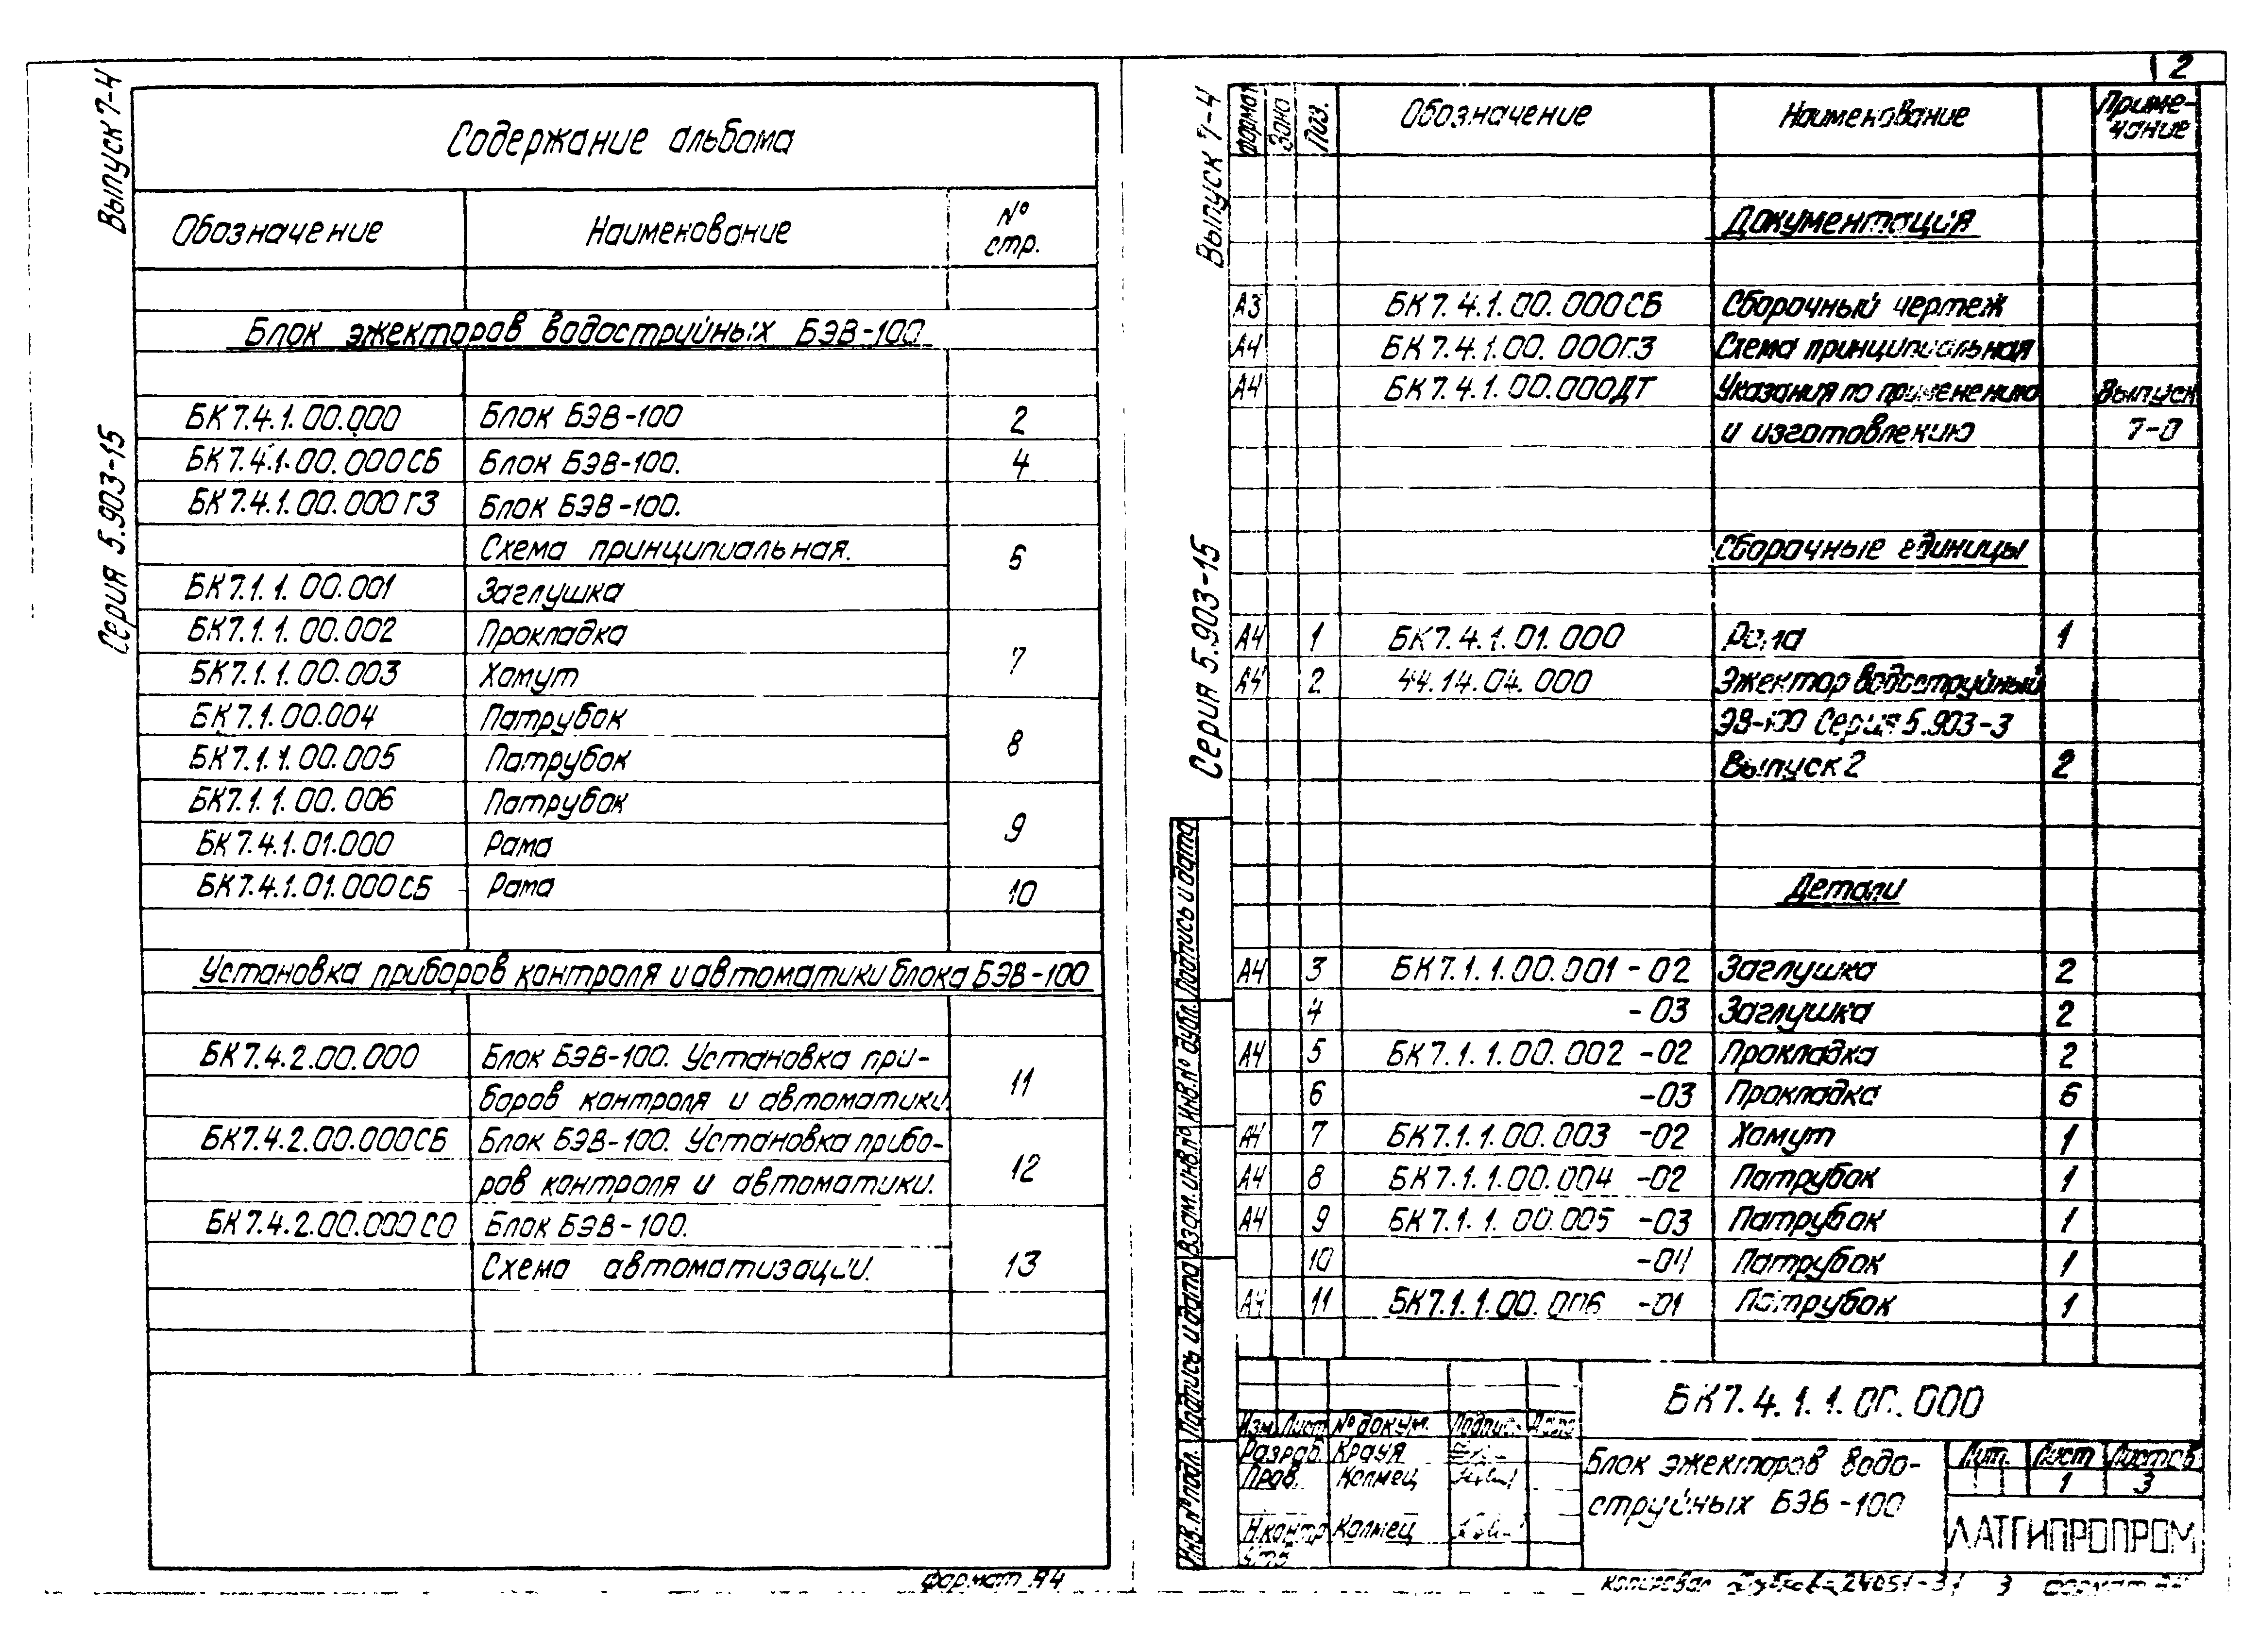 Выпуск 7-4
Серия 5.903-15
Содержание альбома
Обозначение Наименование № стр.
Блок эжекторов водоструйных БЭВ-100
БК7.4.1.00.000 Блок БЭВ-100 2
БК7.4.1.00.000СБ Блок БЭВ-100. 4
БК7.4.1.00.000ГЗ Блок БЭВ-100.
Схема принципиальная. 6
БК7.1.1.00.001 Заглушка
БК7.1.1.00.002 Прокладка
БК7.1.1.00.003 Хомут 7
БК7.1.00.004 Патрубок
БК7.1.1.00.005 Патрубок 8
БК7.1.1.00.006 Патрубок
БК7.4.1.01.000 Рама 9
БК7.4.1.01.000СБ Рама 10
Установка приборов контроля и автоматики блока БЭВ-100
БК7.4.2.00.000 Блок БЭВ-100. Установка при-
боров контроля и автоматики. 11
БК7.4.2.00.000СБ Блок БЭВ-100. Установка прибо-
ров контроля и автоматики. 12
БК7.4.2.00.000СО Блок БЭВ-100.
Схема автоматизации. 13
формат А4
2
Выпуск 7-4
Серия 5.903-15
Формат Зона Поз. Обозначение Наименование Приме-
чание
Документация
А3 БК7.4.1.00.000СБ Сборочный чертеж
А4 БК7.4.1.00.000ГЗ Схема принципиальная
А4 БК7.4.1.00.000ДТ Указания по применению Выпуск
и изготовлению 7-0
Сборочные единицы
А4 1 БК7.4.1.01.000 Рама 1
А4 2 44.14.04.000 Эжектор водоструйный
ЭВ-100 Серия 5.903-3
Выпуск 2 2
Детали
А4 3 БК7.1.1.00.001 -02 Заглушка 2
4 -03 Заглушка 2
А4 5 БК7.1.1.00.002 -02 Прокладка 2
6 -03 Прокладка 6
А4 7 БК7.1.1.00.003 -02 Хомут 1
А4 8 БК7.1.1.00.004 -02 Патрубок 1
А4 9 БК7.1.1.00.005 -03 Патрубок 1
10 -04 Патрубок 1
А4 11 БК7.1.1.00.006 -01 Патрубок 1
Инв.№ подл. Подпись и дата Взам.инв.№ Инв.№ дубл. Подпись и дата
БК7.4.1.1.00.000
Изм Лист № докум. Подпись Дата
Разраб. Крауя
Пров. Колмец
Н.контр Колмец
Утв
Блок эжекторов водо-
струйных БЭВ-100
Лит. Лист Листов
1 3
ЛАТГИПРОПРОМ
Копировал 24051-31 3 формат А4